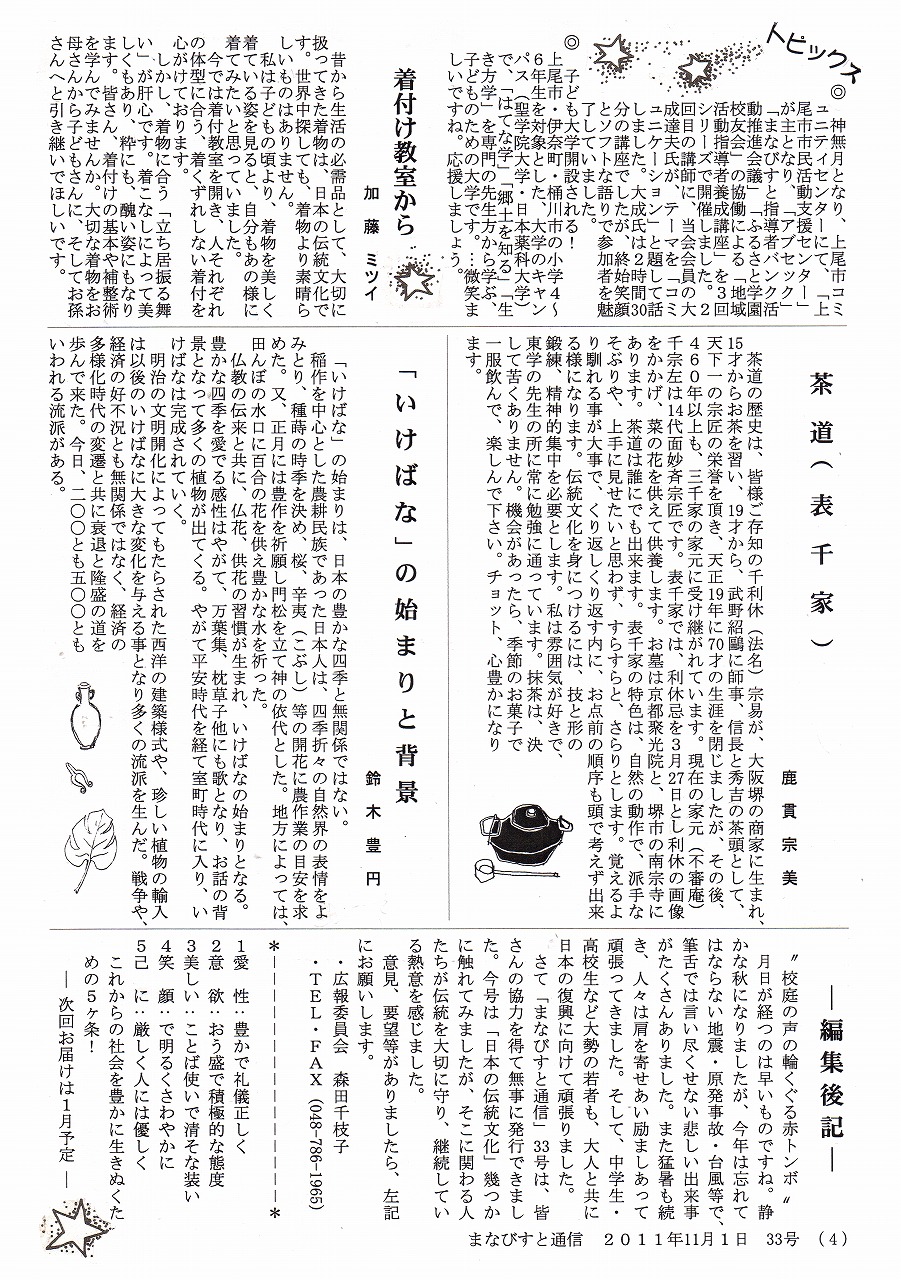 トピックス
◎　神無月となり、上尾市コミ
ュニティセンターにて、「上
尾市市民活動支援センター」
が主となり、「アプセック」
「まなびすと指導者バンク活
動推進会議」「ふるさと学園
校友会」の協働による「地域
活動指導者養成講座」を３回
シリーズで開催しました。２
回目の講師に、当会会員の大
成達夫氏が、テーマを「コミ
ュニケーション」と題して話
しました。大成氏は２時間30
分の講座でしたが、終始笑顔
とソフトな語りで参加者を魅
了していました。
◎　子ども大学開設される！
上尾市・伊奈町・桶川市の小学４〜
６年生を対象とした、大学のキャン
パス（聖学院大学・日本薬科大学）
で、「はてな学」「郷土を知る」「生
き方学」を専門の先生方から学ぶ、
子どものための大学です…微笑ま
しいですね。応援しましょう。
着付け教室から
加藤　ミツイ
昔から生活の必需品として、大切に
扱ってきた着物は、日本の伝統文化で
す。世界中探しても、着物より素晴ら
しいものはありません。
私は子どもの頃より、着物を美しく
着ている姿を見ると、自分もあの様に
着てみたいと思っていました。
今では着付教室を開き、人それぞれ
の体型に合う、着くずれしない着付を
心がけております。
しかし、着物に合う「立ち居振る舞
い」が肝心です。着こなしによって美
しくもあり、粋にも、醜い姿にもなり
ます。皆さん、着付けの基本や補整術
を学んでみませんか。大切な着物をお
母さんから子どもさんに、そしてお孫
さんへと引き継いでほしいです。
茶道（表千家）
鹿貫宗美
茶道の歴史は、皆様ご存知の千利休（法名）宗易が、大阪堺の商家に生まれ、
15才からお茶を習い、19才から、武野紹鷗に師事、信長と秀吉の茶頭として、
天下一の宗匠の栄誉を頂き、天正19年に70才の生涯を閉じましたが、その後、
４６０年以上も、三千家の家元に受け継がれています。現在の家元（不審庵）
千宗左は14代而妙斉宗匠です。表千家では、利休忌を３月27日とし利休の画像
をかかげ、菜の花を供えて供養します。お墓は京都聚光院と、堺市の南宗寺に
あります。茶道は誰にでも出来ます。表千家の特色は、自然の動作で、派手な
そぶりや、上手に見せたいと思わず、すらすらと、さらりとします。覚えるよ
り馴れる事が大事で、くり返しくり返す内に、お点前の順序も頭で考えず出来
る様になります。伝統文化を身につけるには、技と形の
鍛練、精神的集中を必要とします。私は雰囲気が好きで、
東学の先生の所に常に勉強に通っています。抹茶は、決
して苦くありません。機会があったら、季節のお菓子で
一服飲んで、楽しんで下さい。チョット、心豊かになり
ます。
「いけばな」の始まりと背景
鈴木豊円
「いけばな」の始まりは、日本の豊かな四季と無関係ではない。
稲作を中心とした農耕民族であった日本人は、四季折々の自然界の表情をよ
みとり、種蒔の時季を決め、桜、辛夷（こぶし）等の開花に農作業の目安を求
めた。又、正月には豊作を祈願し門松を立て神の依代とした。地方によっては、
田んぼの水口に百合の花を供え豊かな水を祈った。
仏教の伝来と共に、仏花、供花の習慣が生まれ、いけばなの始まりとなる。
豊かな四季を愛でる感性はやがて、万葉集、枕草子他にも歌となり、お話の背
景となって多くの植物が出てくる。やがて平安時代を経て室町時代に入り、い
けばなは完成されていく。
明治の文明開化によってもたらされた西洋の建築様式や、珍しい植物の輸入
は以後のいけばなに大きな変化を与える事となり多くの流派を生んだ。戦争や、
経済の好不況とも無関係ではなく、経済の
多様化時代の変遷と共に衰退と隆盛の道を
歩んで来た。今日、二〇〇とも五〇〇とも
いわれる流派がある。
―編集後記―
〝校庭の声の輪くぐる赤トンボ〟
月日が経つのは早いものですね。静
かな秋になりましたが、今年は忘れて
はならない地震・原発事故・台風等で、
筆舌では言い尽くせない悲しい出来事
がたくさんありました。また猛暑も続
き、人々は肩を寄せあい励ましあって
頑張ってきました。そして、中学生・
高校生など大勢の若者も、大人と共に
日本の復興に向けて頑張りました。
さて「まなびすと通信」33号は、皆
さんの協力を得て無事に発行できまし
た。今号は「日本の伝統文化」幾つか
に触れてみましたが、そこに関わる人
たちが伝統を大切に守り、継続してい
る熱意を感じました。
意見、要望等がありましたら、左記
にお願いします。
・広報委員会　森田千枝子
・ＴＥＬ・ＦＡＸ（048-786-1965）
＊－－－－－－－－－－－－－＊
１愛　性：豊かで礼儀正しく
２意　欲：おう盛で積極的な態度
３美しい：ことば使いで清そな装い
４笑　顔：で明るくさわやかに
５己　に：厳しく人には優しく
これからの社会を豊かに生きぬくた
めの５ヶ条！
―次回お届けは１月予定―
まなびすと通信　２０１１年11月１日　33号　（４）